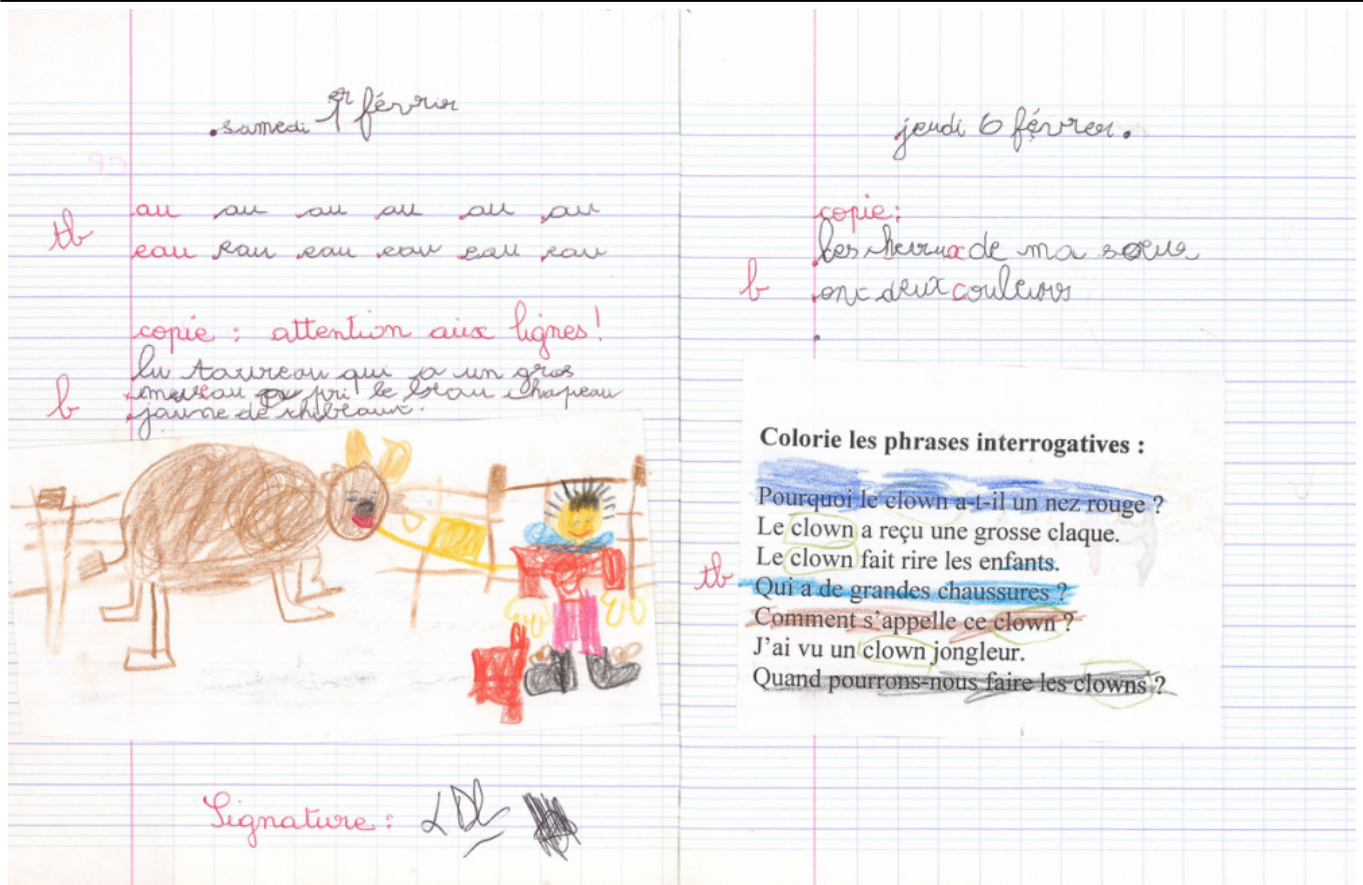 samedi 1er févrir
au au au au au au
tb
eau eau eau eau eau eau
copie : attention aux lignes!
lu taureau qui a un gros
b museau pri le beau chapeau
jaune de
Signature :
jeudi 6 févrer.
copie:
les de ma soeur
b ont deux couleurs
Colorie les phrases interrogatives :
Pourquoi le clown a-t-il un nez rouge ?
Le clown a reçu une grosse claque.
Le clown fait rire les enfants.
tb Qui a de grandes chaussures ?
Comment s'appelle ce clown ?
J'ai vu un clown jongleur.
Quand pourrons-nous faire les clowns ?